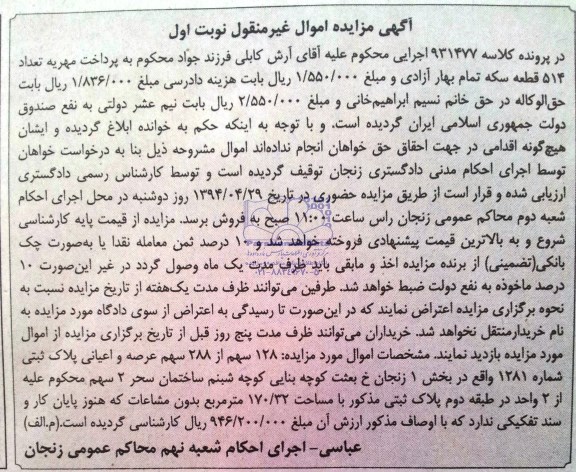 آگهی مزایده اموال غیرمنقول نوبت اول
در پرونده کلاسه ۹۳۱۴۷۷ اجرایی محکوم علیه آقای آرش کابلی فرزند جواد محکوم به پرداخت مهریه تعداد
۵۱۴ قطعه سکه تمام بهار آزادی و مبلغ ۱/۵۵۰/۰۰۰ ریال بابت هزینه دادرسی مبلغ ۱/۸۳۶/۰۰۰ ریال بابت
حق‌الوکاله در حق خانم نسیم ابراهیم‌خانی و مبلغ ۲/۵۵۰/۰۰۰ ریال بابت نیم عشر دولتی به نفع صندوق
دولت جمهوری اسلامی ایران گردیده است. و با توجه به اینکه حکم به خوانده ابلاغ گردیده و ایشان
هیچ‌گونه اقدامی در جهت احقاق حق خواهان انجام نداده‌اند اموال مشروحه ذیل بنا به درخواست خواهان
توسط اجرای احکام مدنی دادگستری زنجان توقیف گردیده است و توسط کارشناس رسمی دادگستری
ارزیابی شده و قرار است از طریق مزایده حضوری در تاریخ ۱۳۹۴/۰۴/۲۹ روز دوشنبه در محل اجرای احکام
شعبه دوم محاکم عمومی زنجان راس ساعت ۱۱:۰۰ صبح به فروش برسد. مزایده از قیمت پایه کارشناسی
شروع و به بالاترین قیمت پیشنهادی فروخته خواهد شد و ۱۰ درصد ثمن معامله نقدا یا به‌صورت چک
بانکی(تضمینی) از برنده مزایده اخذ و مابقی باید ظرف مدت یک ماه وصول گردد در غیر این‌صورت ۱۰
درصد ماخوذه به نفع دولت ضبط خواهد شد. طرفین می‌توانند ظرف مدت یک‌هفته از تاریخ مزایده نسبت به
نحوه برگزاری مزایده اعتراض نمایند که در این‌صورت تا رسیدگی به اعتراض از سوی دادگاه مورد مزایده به
نام خریدارمنتقل نخواهد شد. خریداران می‌توانند ظرف مدت پنج روز قبل از تاریخ برگزاری مزایده از اموال
مورد مزایده بازدید نمایند. مشخصات اموال مورد مزایده: ۱۲۸ سهم از ۲۸۸ سهم عرصه و اعیانی پلاک ثبتی
شماره ۱۲۸۱ واقع در بخش ۱ زنجان خ بعثت کوچه بنایی کوچه شبنم ساختمان سحر ۲ سهم محکوم علیه
از ۲ واحد در طبقه دوم پلاک ثبتی مذکور با مساحت ۱۷۰/۳۲ مترمربع بدون مشاعات که هنوز پایان کار و
سند تفکیکی ندارد که با اوصاف مذکور ارزش آن مبلغ ۹۴۶/۲۰۰/۰۰۰ ریال کارشناسی گردیده است.(م.الف)
عباسی- اجرای احکام شعبه نهم محاکم عمومی زنجان